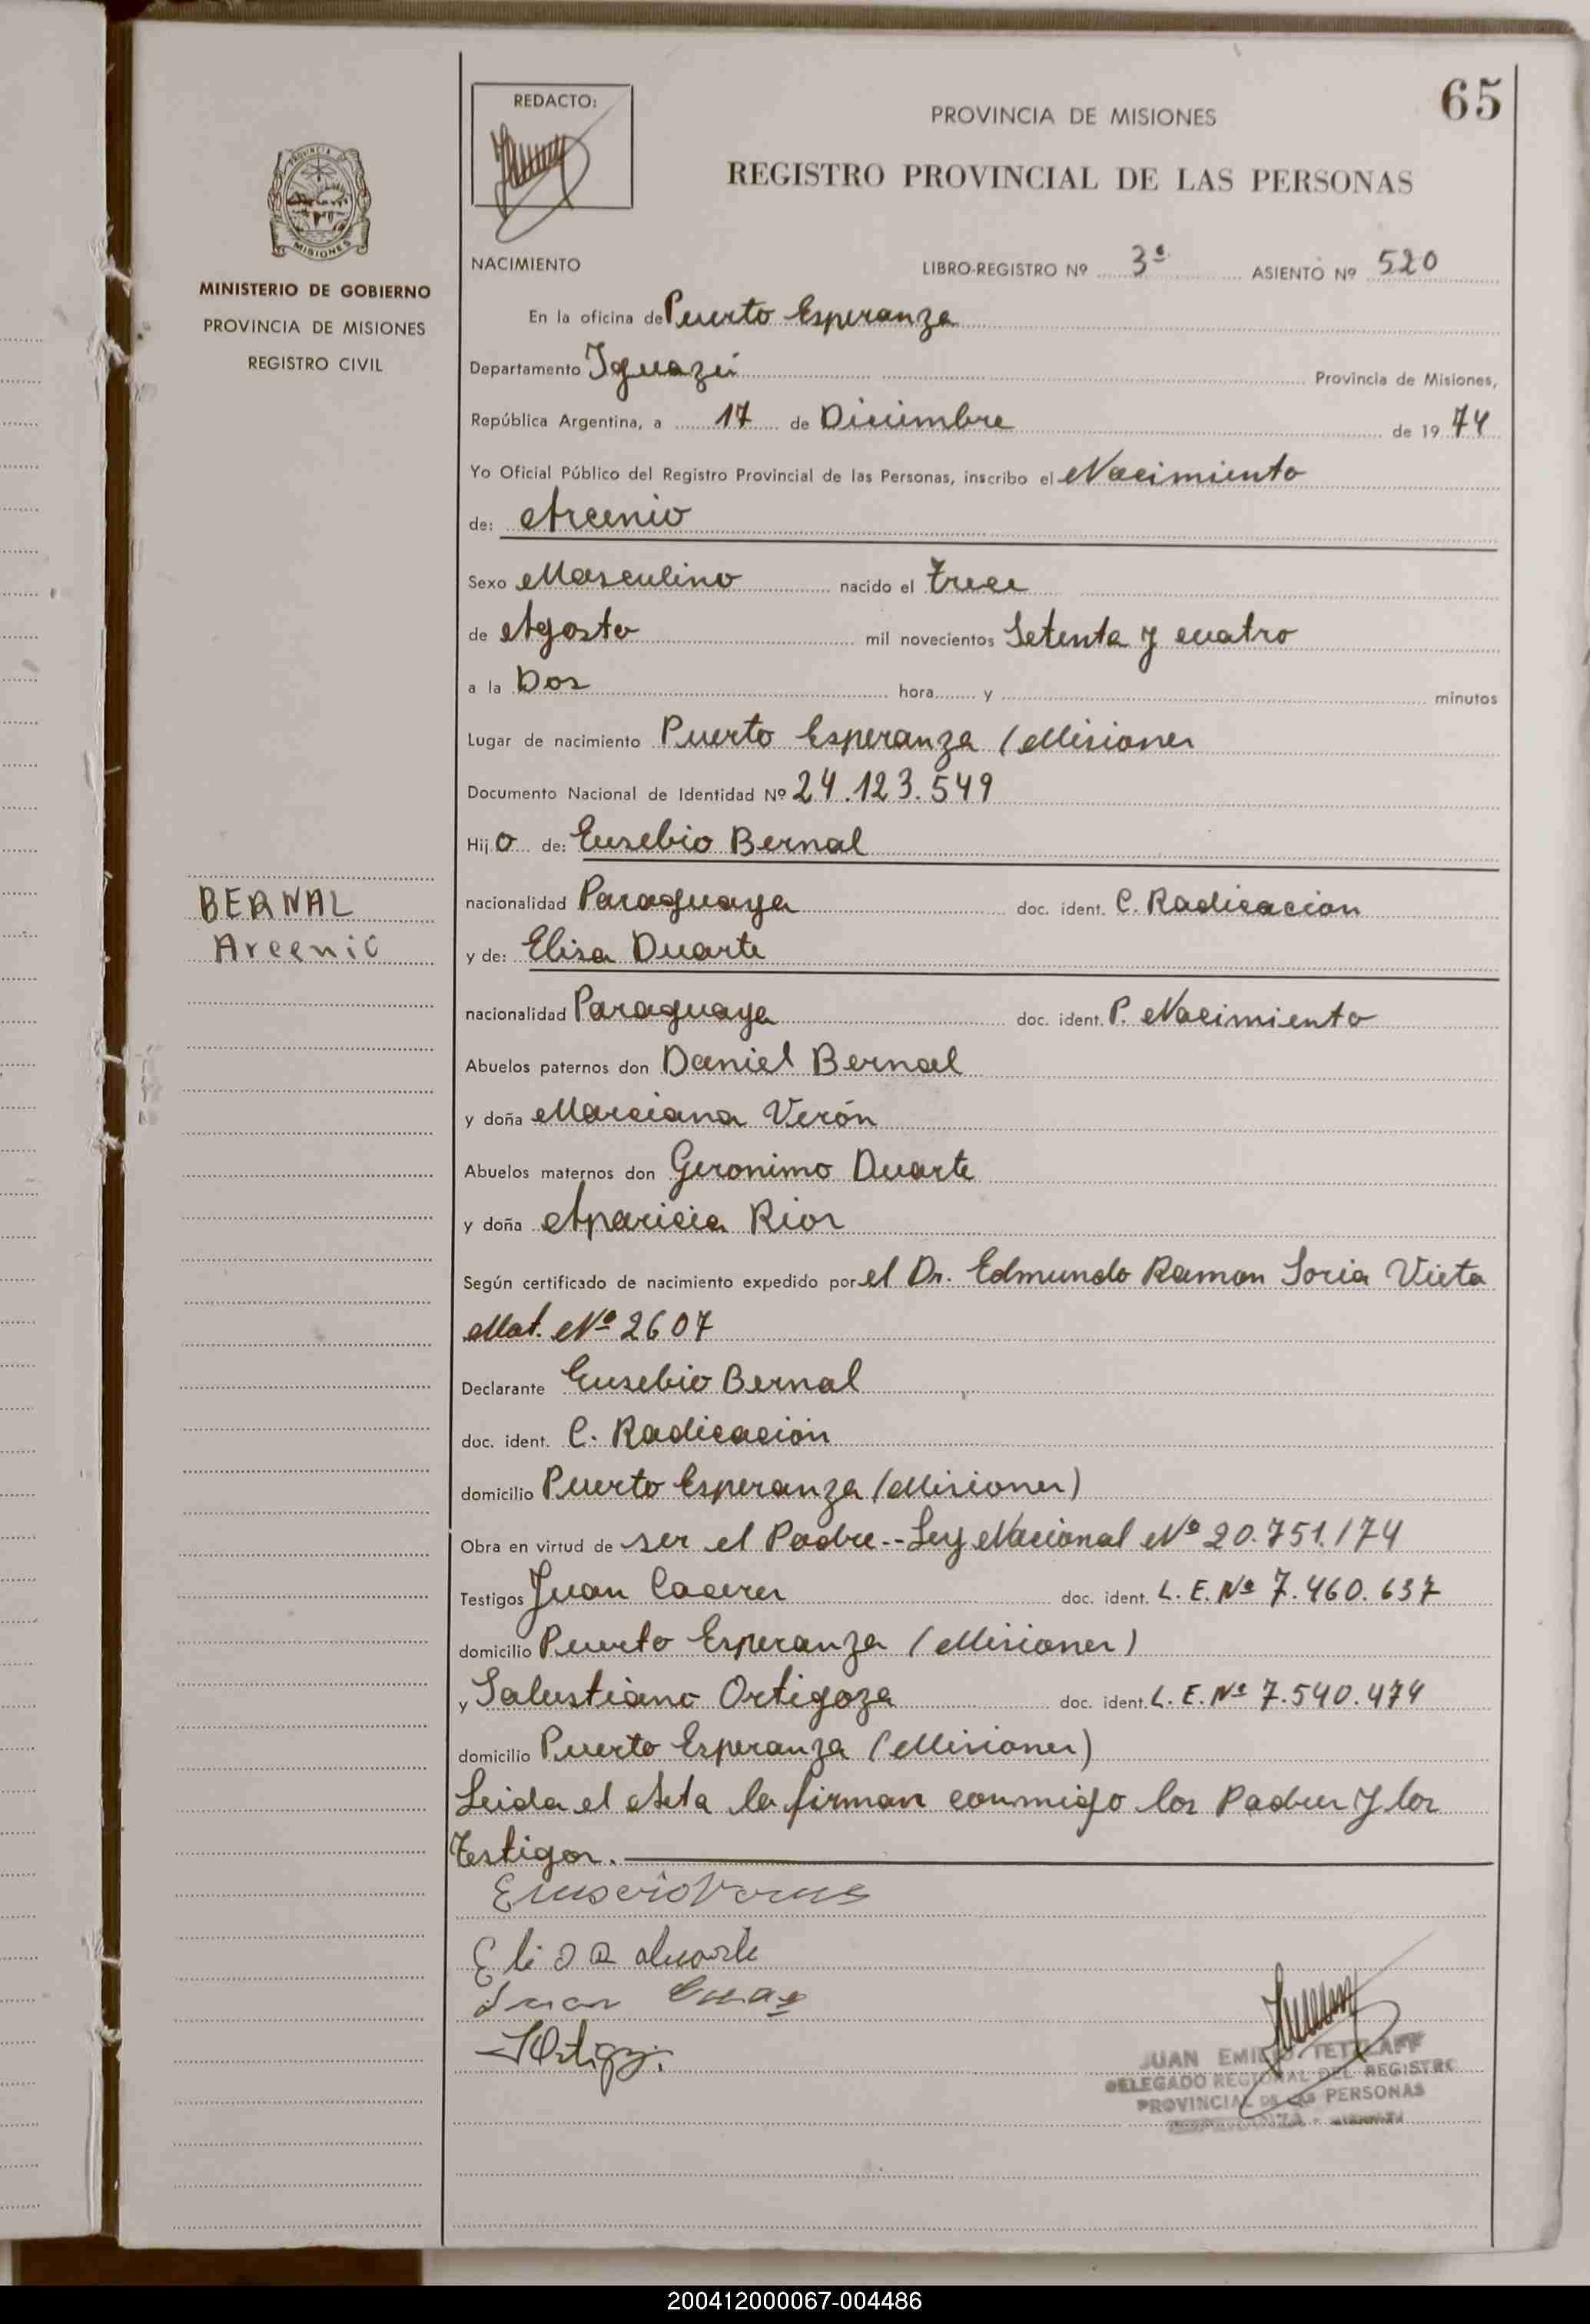 65
REDACTO:
PROVINCIA DE MISIONES
REGISTRO PROVINCIAL DE LAS PERSONAS
MISIONES
MINISTERIO DE GOBIERNO
PROVINCIA DE MISIONES
REGISTRO CIVIL
NACIMIENTO LIBRO-REGISTRO Nº 3º ASIENTO Nº 520
En la oficina de Puerto Esperanza
Departamento Iguazú Provincia de Misiones,
República Argentina, a 17 de Diciembre de 19 74
Yo Oficial Público del Registro Provincial de las Personas, inscribo el Nacimiento
de: Arcenio
Sexo Masculino nacido el trece
de Agosto mil novecientos Setenta y cuatro
a la Dos hora y minutos
Lugar de nacimiento Puerto Esperanza (Misiones
Documento Nacional de Identidad Nº 24.123.549
Hijo de: Eusebio Bernal
BERNAL
Arcenio
nacionalidad Paraguaya doc. ident. C. Radicacion
y de: Elisa Duarte
nacionalidad Paraguaya doc. ident. P. Nacimiento
Abuelos paternos don Daniel Bernal
y doña Marciana Verón
Abuelos maternos don Geronimo Duarte
y doña Aparicia Rios
Según certificado de nacimiento expedido por el Dr. Edmundo Ramon Soria Vieta
Mat. Nº 2607
Declarante Eusebio Bernal
doc. ident. C. Radicación
domicilio Puerto Esperanza (Misiones)
Obra en virtud de ser el Padre.-- Ley Nacional Nº 20.751/74
Testigos Juan Caceres doc. ident. L. E. Nº 7.460.637
domicilio Puerto Esperanza (Misiones)
y Salustiano Ortigoza doc. ident. L. E. Nº 7.540.474
domicilio Puerto Esperanza (Misiones)
Leida el Acta la firman conmigo los Padres y los
Testigos.
Elisa duarte
JUAN EMILIO TETZLAFF
DELEGADO REGIONAL DEL REGISTRO
PROVINCIAL DE LAS PERSONAS
200412000067-004486